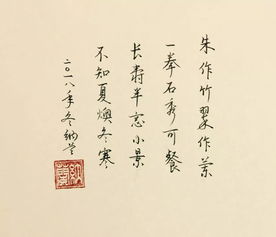 朱作竹翠作兰
一拳石秀可餐
长寿半窓小景
不知夏燠冬寒
二〇一八年冬纳兰